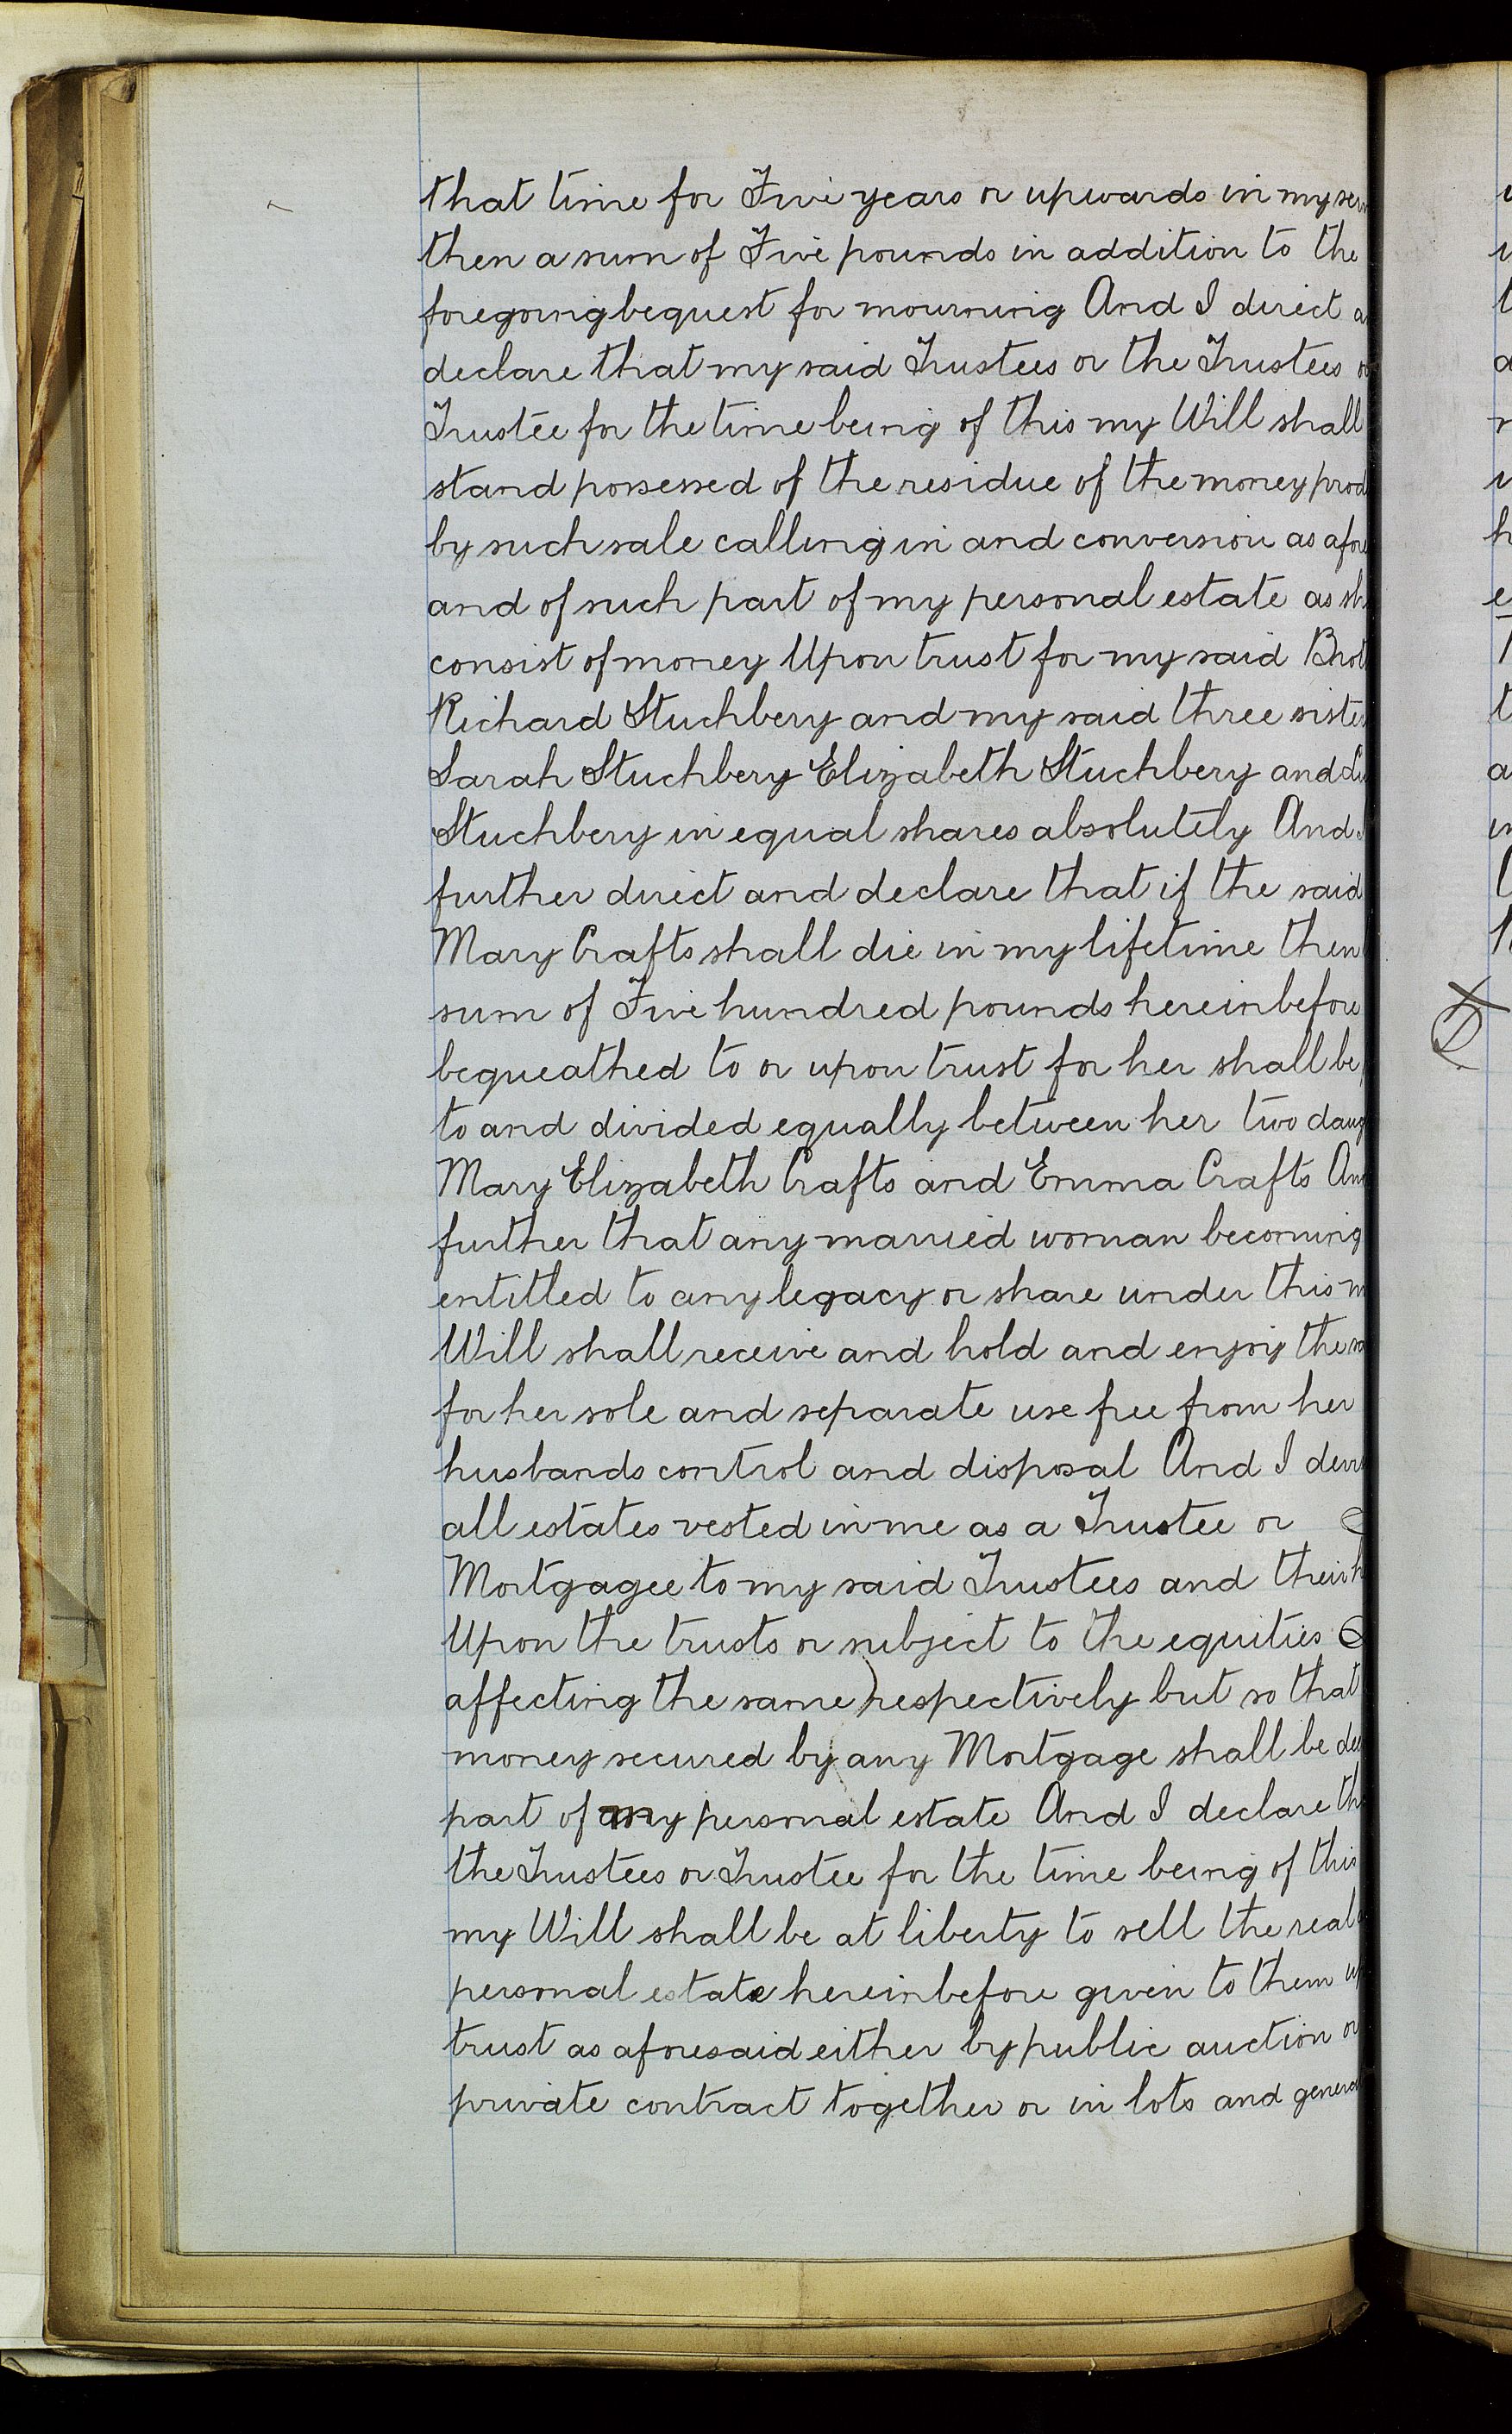 that time for Five years or upwards in my
then a sum of Five pounds in addition to the
foregoing bequest for mourning And I direct
declare that my said Trustees or the Trustees
Trustee for the time being of this my Will shall
stand possessed of the residue of the money prod
by such sale calling in and conversion as afore
and of such part of my personal estate as sh
consist of money Upon trust for my said Brot
Richard Stuchbery and my said three sister
Sarah Stuchbery Elizabeth Stuchbery and
Stuchbery in equal shares absolutely And
further direct and declare that if the said
Mary Crafts shall die in my lifetime then
sum of Five hundred pounds hereinbefore
bequeathed to or upon trust for her shall be
to and divided equally between her two daug
Mary Elizabeth Crafts and Emma Crafts An
further that any married woman becoming
entitled to any legacy or share under this m
Will shall receive and hold and enjoy the sa
for her sole and separate use free from her
husbands control and disposal And I devi
all estates vested in me as a Trustee or
Mortgagee to my said Trustees and their h
Upon the trusts or subject to the equities
affecting the same) respectively but so that
money secured by any Mortgage shall be dee
part of my personal estate And I declare th
the Trustees or Trustee for the time being of this
my Will shall be at liberty to sell the real
personal estate hereinbefore given to them up
trust as aforesaid either by public auction or
private contract together or in lots and general